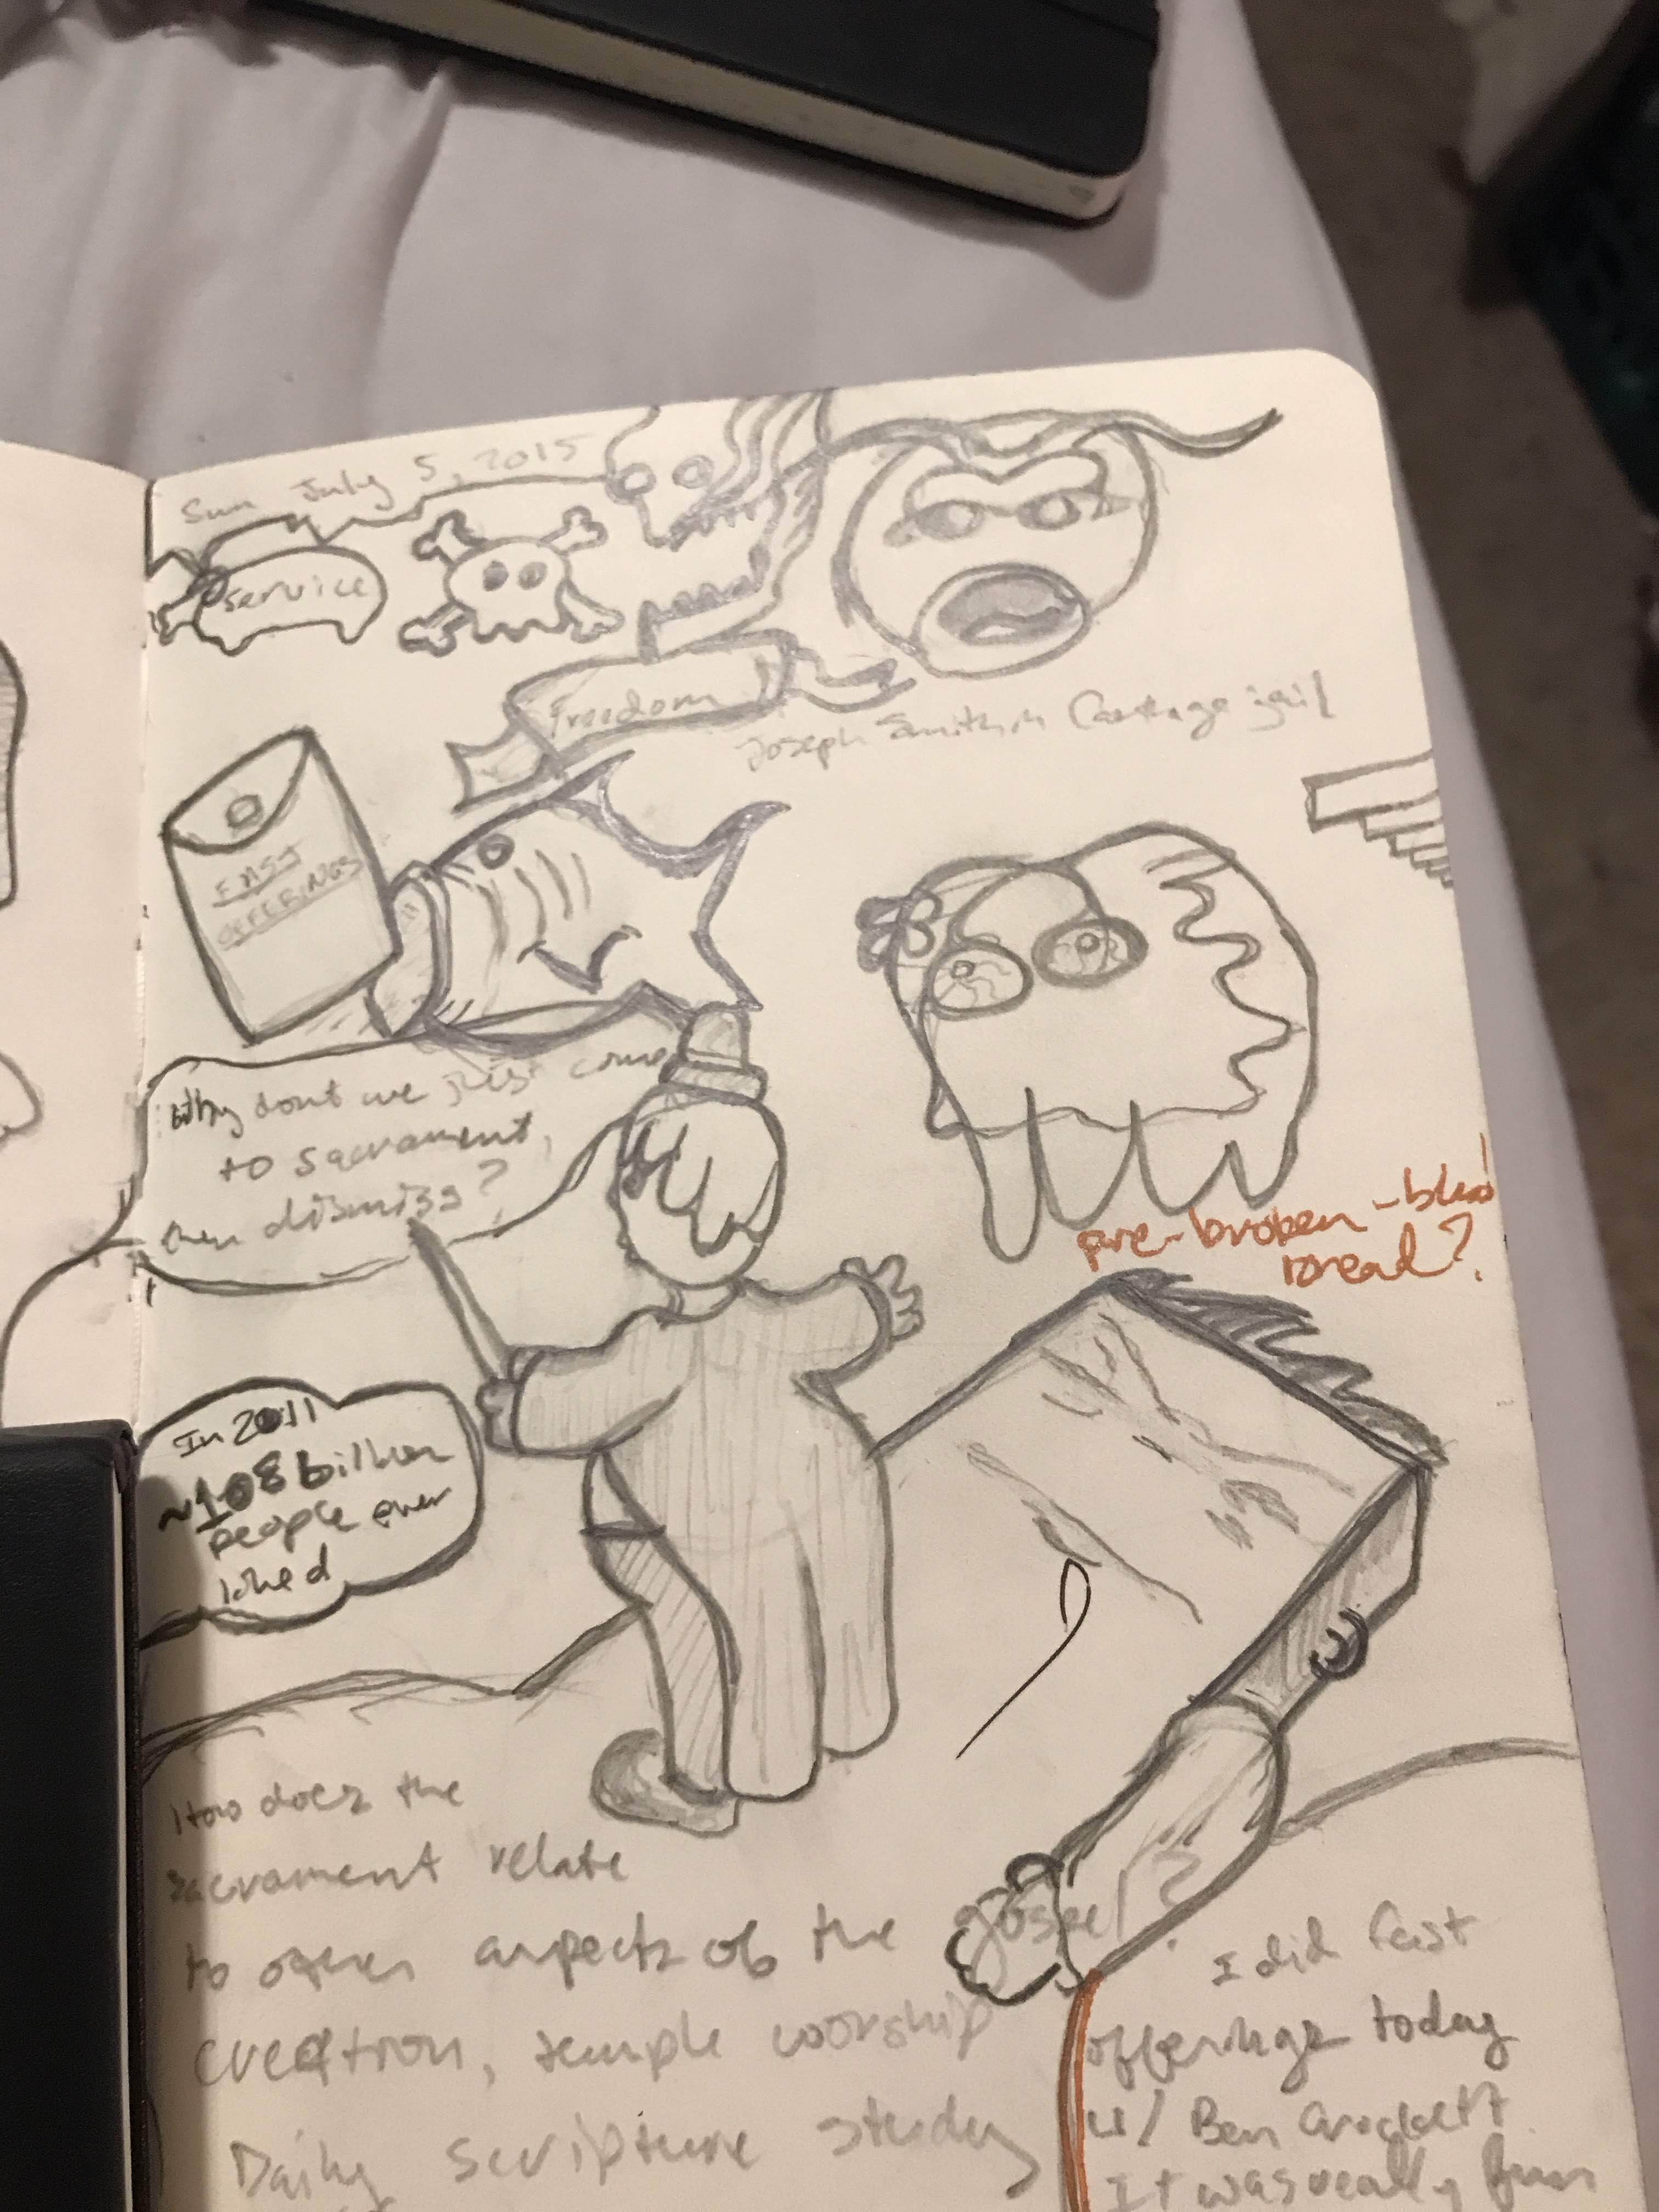 Sun July 5, 2015
service
freedom
Joseph Smith in Carthage jail
FAST
OFFERINGS
Why dont we just come
to sacrament,
then dismiss?
pre-broken-bless
bread?
In 2011
~108 billion
people ever
lived
How does the
sacrament relate
to other aspects of the gospel?
creation, temple worship
Daily scripture study
I did fast
offerings today
w/ Ben Crockett
It was really fun